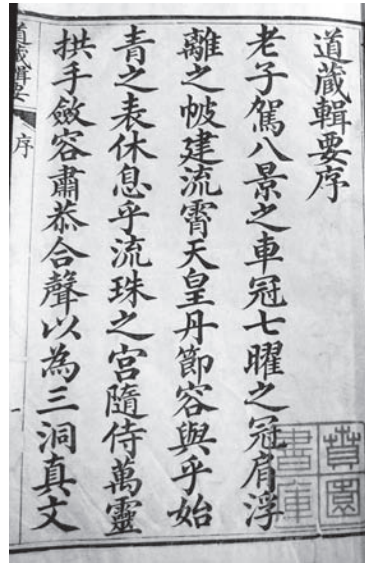 道藏輯要序
老子駕八景之車冠七曜之冠肩浮
離之帔建流霄天皇丹節容與乎始
青之表休息乎流珠之宮隨侍萬靈
拱手斂容肅恭合聲以為三洞真文
道藏輯要
序
賁園
書庫